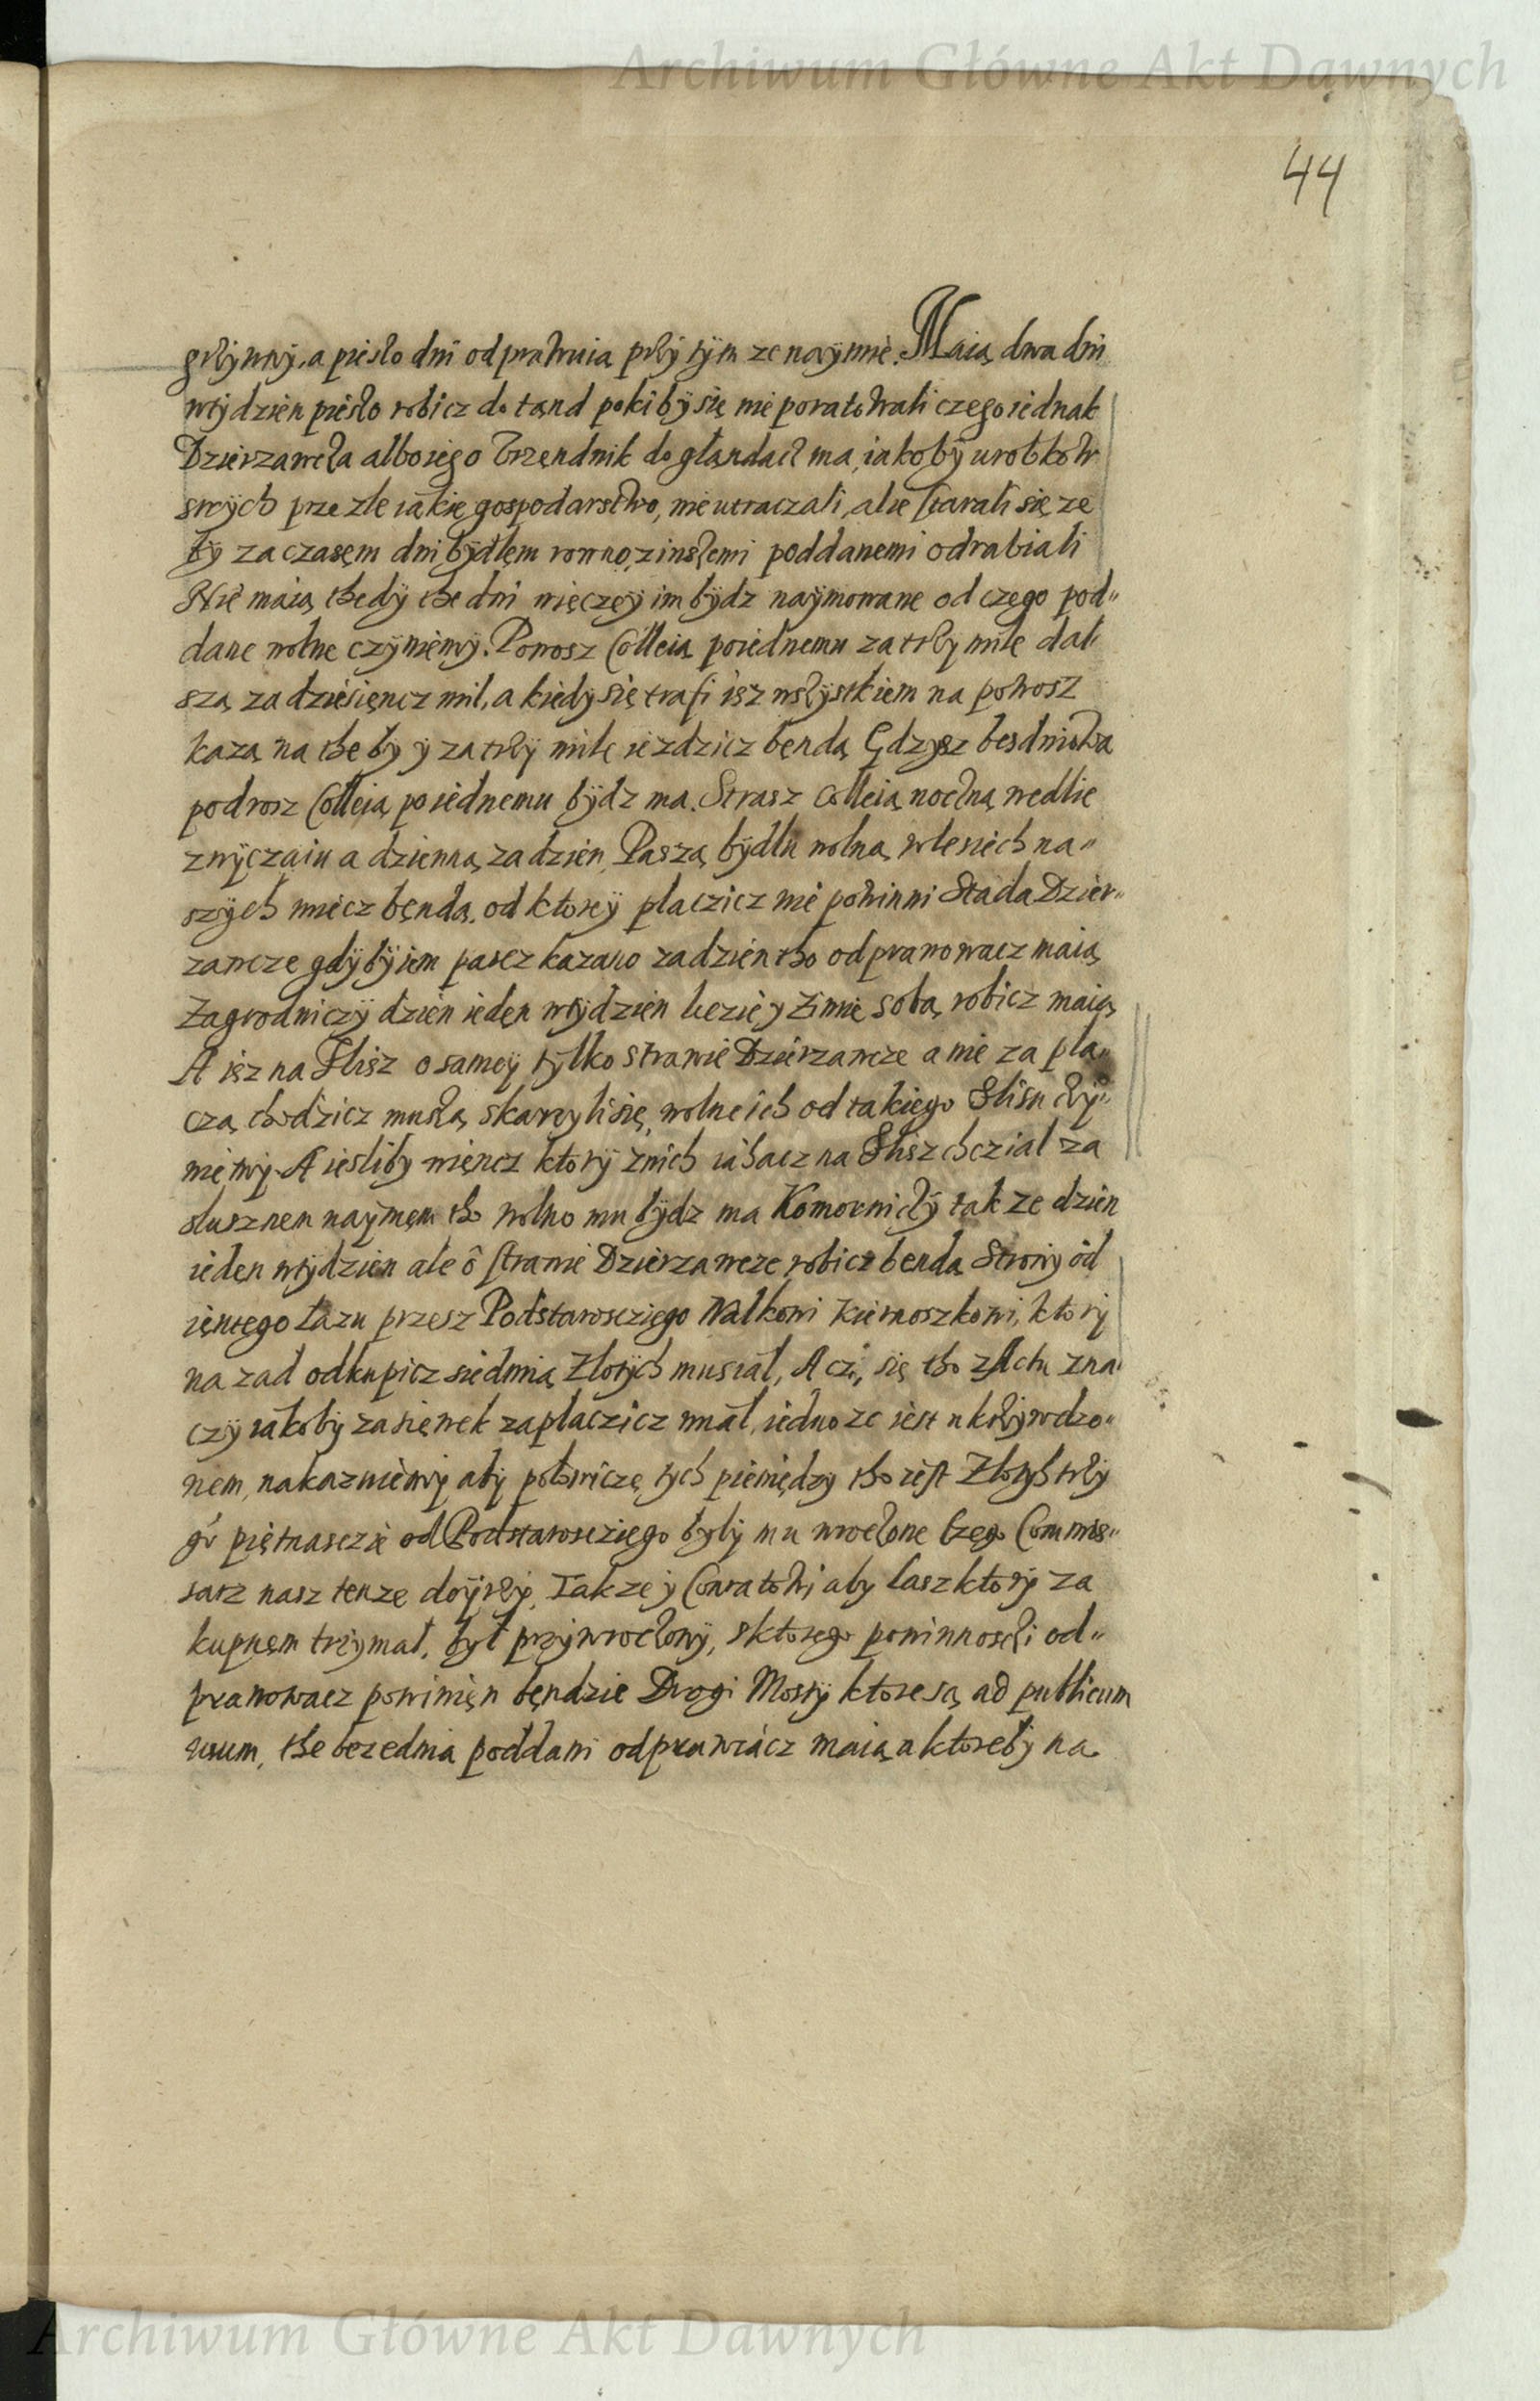 Archiwum Główne Akt Dawnych
44
grzywny, a pieszo dni odprawuią przy tym ze naymie. Maią dwa dni
wtydzien pieszo robicz do tąnd poki by się nie poratowali czego iednak
Dzierzawcza albo iego Vrzendnik doglandacz ma, iakoby urobkow
swych prze zle iakie gospodarstwo, nie utraczali, alie starali się ze
by za czasęm dni bydłęm rowno, zinszemi poddanemi odrabiali
Nie maią thedy the dni więczey im bydz naymowane od czego pod„
dane wolne czyniemy. Powosz Colleią poiednemu za trzy mile dal
szą za dziesięncz mil, a kiedy się trafi isz wszystkiem na powosz
kazą na the by y za trzy mile iezdzicz bendą Gdzysz bes dniowa
podwosz Colleią poiednemu bydz ma. Strasz Colleią noczną wedlie
zwyczaiu a dzienną za dzien, Paszą bydłu wolną wlesiech na„
szych miecz bendą, od ktorey placzicz nie powinni Stada Dzier„
zawcze gdyby iem pascz kazano za dzien tho odprawowacz maią
Zagrodniczy dzien ieden wtydzien liecie y zimie sobą robicz maią
A isz na Flisz o samey tylko strawie Dzierzawcze a nie za pla„
czą chodzicz muszą skarzyli się, wolne ich od takiego Flisu czy„
niemy. A iesliby więncz ktory znich iachacz na Flisz chczial za
slusznem naymem tho wolno mu bydz ma Komorniczy takze dzien
ieden wtydzien ale o strawie Dzierzawcze robicz bendą Strony od
ientego Lazu przesz Podstarosciego Walkowi Kiernoszkowi, ktory
na zad odkupicz siedmią Zlotych musiał, A czi, się tho z Actu zna
czy iakoby zasięwek zaplaczicz miał, iedno ze iest ukrzywdzo„
nem, nakazuiemy aby polowiczę tych pieniędzy tho iest Zlotych trzy
gr piętnasczie od Podstarosciego były mu wroczone Czego Commis„
sarz nasz tenze doyrzy, Takze y Conratowi aby Lasz ktory za
kupnem trzymał, był przywroczony, sktorego powinnosczi od„
prawowacz powinięn bęndzie Drogi Mosty ktore są ad publicum
usum, the bezednia poddani odprawiacz maią a ktoreby na
Archiwum Główne Akt Dawnych